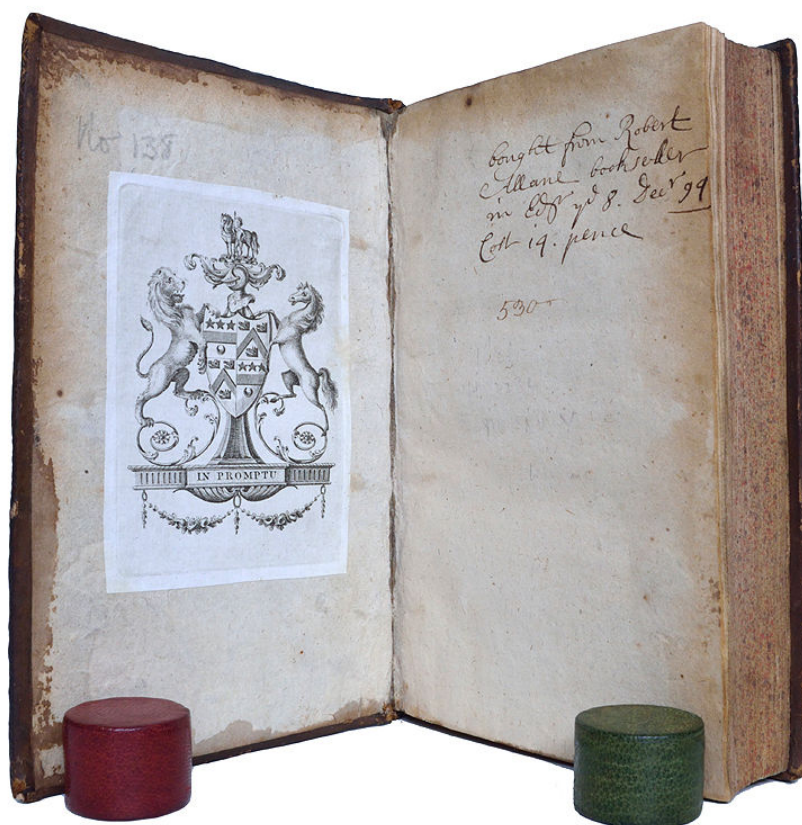 No 138
IN PROMPTU
bought from Robert
Allane bookseller
in Edr ye 8. Decr 94
Cost 19. pence
530